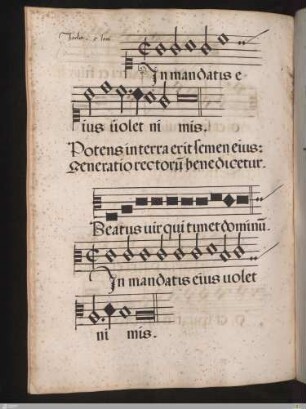 In mandatis e-
ius uolet ni mis.
Potens in terra erit semen eius:
generatio rectorū benedicetur.
Beatus uir qui timet dominū.
In mandatis eius uolet
ni mis.